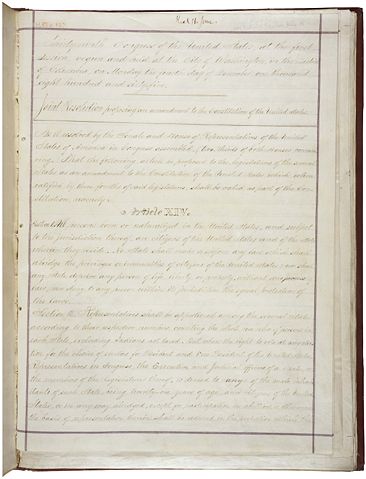 Thirty-ninth Congress of the United States, at the first
session begun and held at the City of Washington, in the District
of Columbia, on Monday the fourth day of December one thousand
eight hundred and sixty-five.
Joint Resolution proposing an amendment to the Constitution of the United States.
Be it resolved by the Senate and House of Representatives of the United
States of America in Congress assembled, (two thirds of both Houses concurring,)
That the following article be proposed to the legislatures of the several
States as an amendment to the Constitution of the United States, which, when
ratified by three fourths of said legislatures, shall be valid as part of the Con-
stitution, namely:
Article XIV.
Section 1. All persons born or naturalized in the United States, and subject
to the jurisdiction thereof, are citizens of the United States and of the State
wherein they reside. No State shall make or enforce any law which shall
abridge the privileges or immunities of citizens of the United States; nor shall
any State deprive any person of life, liberty, or property, without due process of
law, nor deny to any person within its jurisdiction the equal protection of
the laws.
Section 2. Representatives shall be apportioned among the several States
according to their respective numbers, counting the whole number of persons in
each State, excluding Indians not taxed. But when the right to vote at any elec-
tion for the choice of electors for President and Vice President of the United States,
Representatives in Congress, the Executive and Judicial officers of a State, or
the members of the Legislature thereof, is denied to any of the male inhabi-
tants of such State, being twenty-one years of age, and citizens of the United
States, or in any way abridged, except for participation in rebellion, or other crime,
the basis of representation therein shall be reduced in the proportion which the